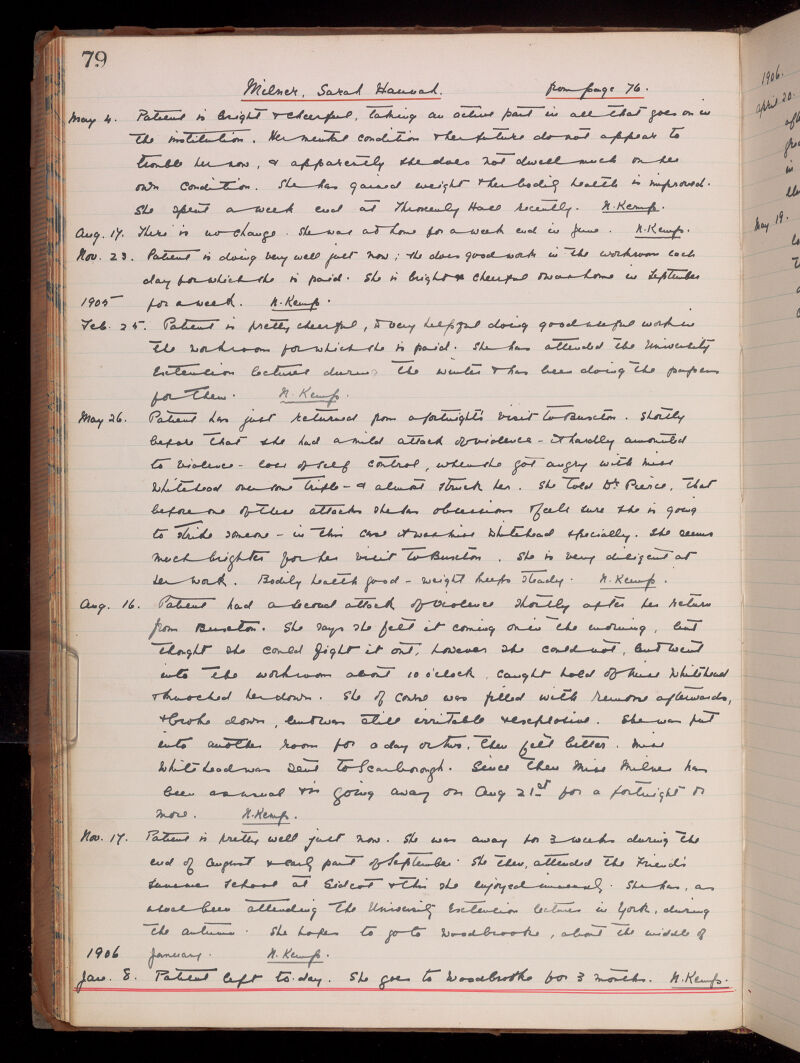 79
Milner, Sarah Hannah. from page 76.
May 4. Patient is bright & cheerful, taking an active part in all that goes on in
the institution. Her mental condition & her future do not appear to
trouble her now, & apparently she does not dwell much on her
own condition. She has gained weight & her bodily health is improved.
She spent a week end at Throxenby Hall recently. N. Kemp.
Aug. 17. There is no change. She was at home for a week end in June. N. Kemp.
Nov. 23. Patient is doing very well just now; she does good work in the workroom each
day for which she is paid. She is bright & cheerful & was home in September
1905 for a week. N. Kemp.
Feb. 25. Patient is pretty cheerful, & very helpful doing good useful work in
the workroom for which she is paid. She has attended the University
Extension lectures during the winter & has been doing the papers
for them. N. Kemp.
May 26. Patient has just returned from a fortnight's visit to Buxton. Shortly
before that she had a mild attack of violence - it hardly amounted
to violence - loss of self control, when she got angry with Miss
Whitehead over some trifle - & almost struck her. She told Dr Pierce, that
before one of these attacks she has obsessions & feels sure she is going
to strike someone - in this case it was Miss Whitehead specially. She seems
much brighter for her visit to Buxton. She is very diligent at
her work. Bodily health good - weight keeps steady. N. Kemp.
Aug. 16. Patient had a second attack of violence shortly after her return
from Buxton. She says she felt it coming on in the morning, but
thought she could fight it out; however she could not, but went
into the workroom about 10 o'clock, caught hold of Miss Whitehead
& knocked her down. She of course was filled with remorse afterwards,
& broke down, but was still irritable & explosive. She was put
into another room for a day or two, then felt better. Miss
Whitehead was sent to Scarborough. Since then Miss Milner has
been as usual & is going away on Aug 21st for a fortnight or
more. N. Kemp.
Nov. 17. Patient is pretty well just now. She was away for 3 weeks during the
end of August & early part of September. She then, attended the Friends
Summer School at Sidcot & this she enjoyed immensely. She has, as
usual been attending the University Extension lectures in York, during
the autumn. She hopes to go to Woodbrooke, about the middle of
1906 January. N. Kemp.
Jan. 8. Patient left to-day. She goes to Woodbrooke for 3 months. N. Kemp.
1906.
April 20.
in
May 19.